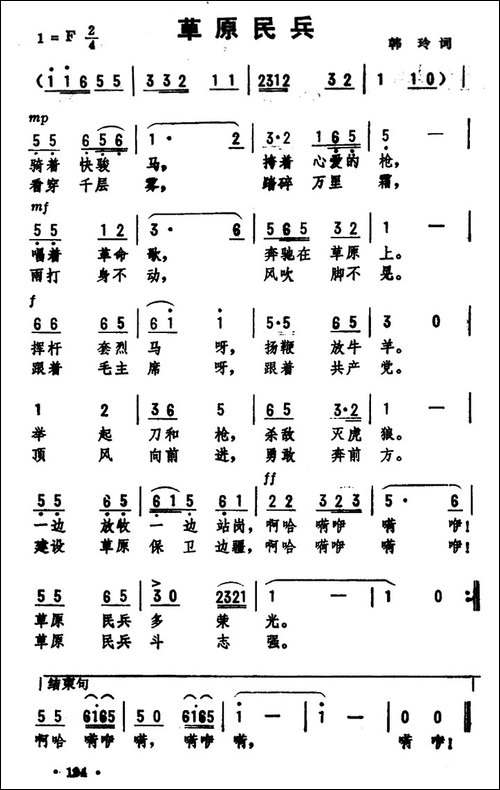 草原民兵
1=F 2/4
韩 玲 词
(1 1 6 5 5 | 3 3 2 1 1 | 2312 3 2 | 1 1 0)
mp
5 5 6 5 6 | 1· 2 | 3·2 1 6 5 | 5 — |
骑着 快骏 马, 挎着 心爱的 枪,
看穿 千层 雾, 踏碎 万里 霜,
mf
5 5 1 2 | 3· 6 | 5 6 5 3 2 | 1 — |
唱着 革命 歌, 奔驰在 草原 上。
雨打 身不 动, 风吹 脚不 晃。
f
6 6 6 5 | 6 1 1 | 5·5 6 5 | 3 0 |
挥杆 套烈 马 呀, 扬鞭 放牛 羊。
跟着 毛主 席 呀, 跟着 共产 党。
1 2 | 3 6 5 | 6 5 3·2 | 1 — |
举 起 刀和 枪, 杀敌 灭虎 狼。
顶 风 向前 进, 勇敢 奔前 方。
ff
5 5 6 5 | 6 1 5 6 1 | 2 2 3 2 3 | 5· 6 |
一边 放牧 一 边 站岗, 啊哈 嗬咿 嗬 咿!
建设 草原 保 卫 边疆, 啊哈 嗬咿 嗬 咿!
5 5 6 5 | 3 0 2321 | 1 — | 1 0 :|
草原 民兵 多 荣 光。
草原 民兵 斗 志 强。
结束句
5 5 6165 | 5 0 6165 | 1 — | 1 — | 0 0 |
啊哈 嗬咿 嗬, 嗬咿 嗬, 嗬 咿!
· 194 ·